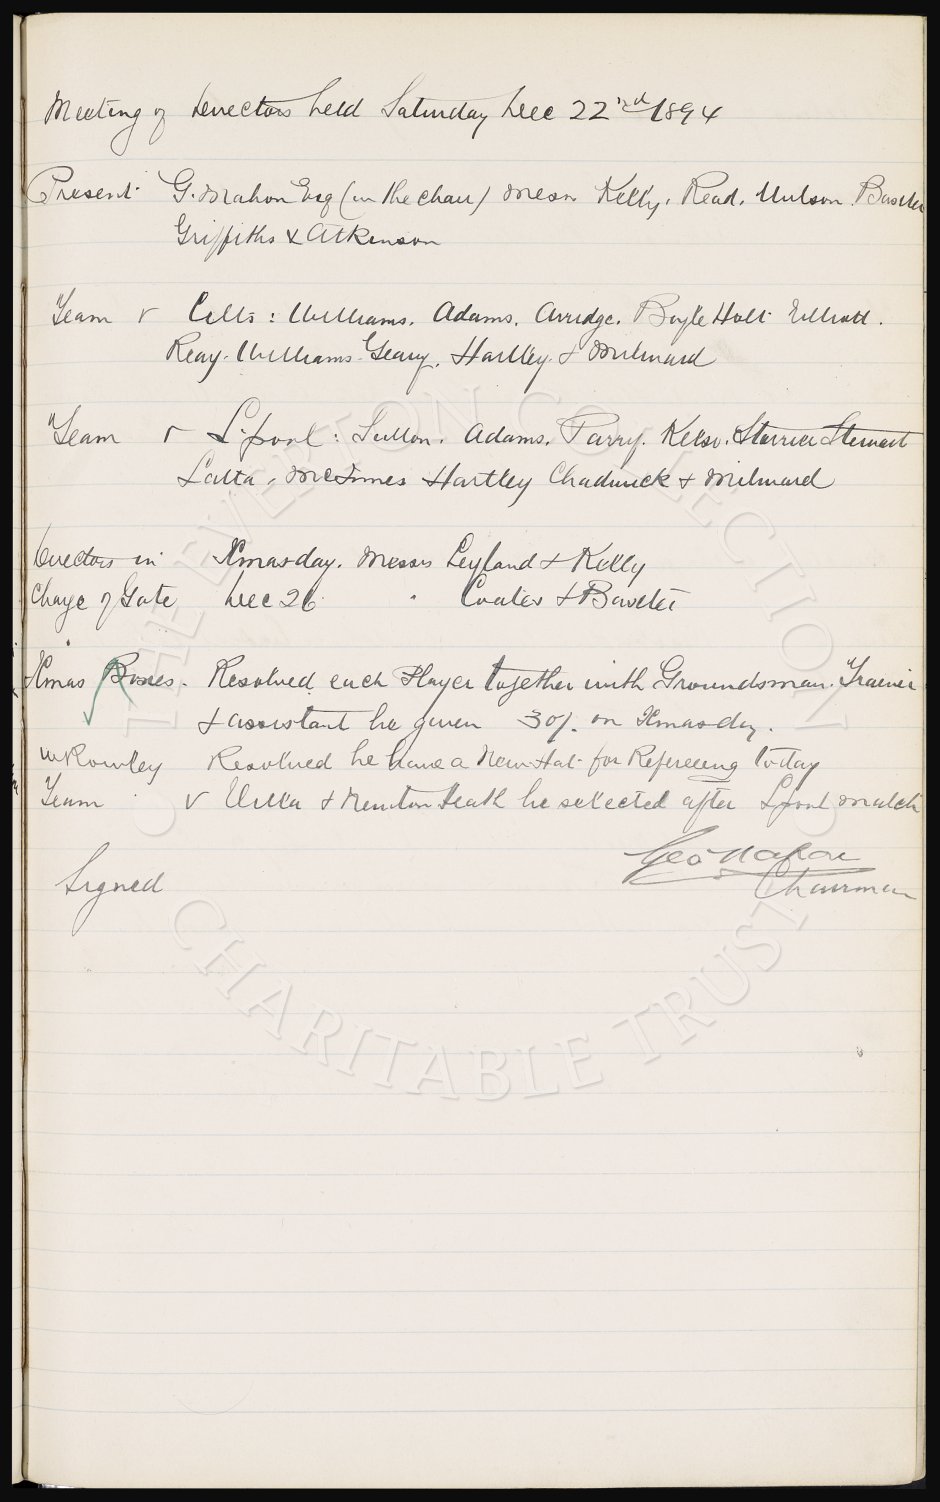 Meeting of Directors held Saturday Dec 22nd 1894
Present G. Mahon Esq (in the chair) Messrs Kelly. Read. Wilson. Baxter
Griffiths & Atkinson
Team v Celts: Williams. Adams. Arridge. Boyle Holt Elliott.
Reay. Williams. Geary. Hartley. & Milward
Team v L.pool: Sutton. Adams. Parry. Kelso. Storrier Stewart
Latta. McInnes Hartley Chadwick & Milward
Directors in Xmas day. Messrs Leyland & Kelly
Charge of Gate Dec 26 " Coates & Baxter
Xmas Boxes. Resolved each Player together with Groundsman. Trainer
& assistant be given 30/. on Xmas day.
W Rowley Resolved he have a New Hat for Refereeing today
Team v Villa & Newton Heath be selected after Lpool match
Signed Geo Mahon
Chairman
THE EVERTON COLLECTION
CHARITABLE TRUST